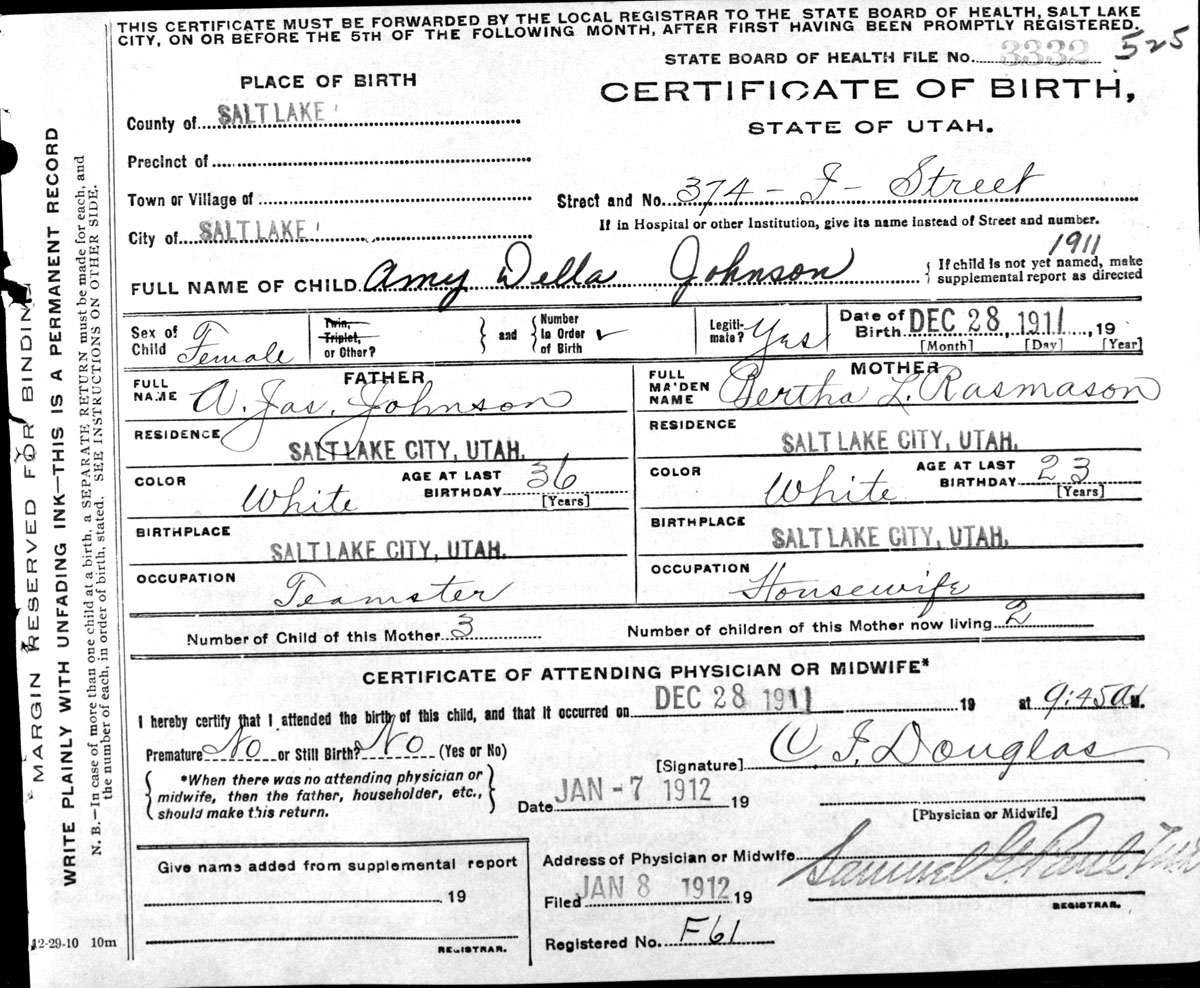 THIS CERTIFICATE MUST BE FORWARDED BY THE LOCAL REGISTRAR TO THE STATE BOARD OF HEALTH, SALT LAKE
CITY, ON OR BEFORE THE 5TH OF THE FOLLOWING MONTH, AFTER FIRST HAVING BEEN PROMPTLY REGISTERED.
STATE BOARD OF HEALTH FILE No. 3332 525
PLACE OF BIRTH
CERTIFICATE OF BIRTH,
STATE OF UTAH.
County of SALT LAKE
Precinct of
Town or Village of
Street and No. 374 - I - Street
If in Hospital or other Institution, give its name instead of Street and number.
City of SALT LAKE
1911
FULL NAME OF CHILD Amy Della Johnson
If child is not yet named, make
supplemental report as directed
Sex of Child Female
Twin,
Triplet,
or Other?
and
Number
In Order
of Birth
Legiti-
mate? Yas
Date of
Birth DEC 28 1911, 19
[Month] [Day] [Year]
FATHER
FULL
NAME A. Jas. Johnson
RESIDENCE
SALT LAKE CITY, UTAH.
COLOR White
AGE AT LAST
BIRTHDAY 36
[Years]
BIRTHPLACE
SALT LAKE CITY, UTAH.
OCCUPATION
Teamster
MOTHER
FULL
MAIDEN
NAME Bertha L. Rasmason
RESIDENCE
SALT LAKE CITY, UTAH.
COLOR White
AGE AT LAST
BIRTHDAY 23
[Years]
BIRTHPLACE
SALT LAKE CITY, UTAH.
OCCUPATION
Housewife
Number of Child of this Mother 3
Number of children of this Mother now living 2
CERTIFICATE OF ATTENDING PHYSICIAN OR MIDWIFE*
I hereby certify that I attended the birth of this child, and that it occurred on DEC 28 1911 19 at 9:45 A M.
Premature No or Still Birth? No (Yes or No)
*When there was no attending physician or
midwife, then the father, householder, etc.,
should make this return.
[Signature] Douglas
Date JAN -7 1912 19
[Physician or Midwife]
Give name added from supplemental report
19
REGISTRAR.
Address of Physician or Midwife
Filed JAN 8 1912 19
Samuel G. Paul
REGISTRAR.
Registered No. F61
12-29-10 10m
MARGIN RESERVED FOR BINDING
WRITE PLAINLY WITH UNFADING INK—THIS IS A PERMANENT RECORD
N. B.—In case of more than one child at a birth, a SEPARATE RETURN must be made for each, and
the number of each, in order of birth, stated. SEE INSTRUCTIONS ON OTHER SIDE.